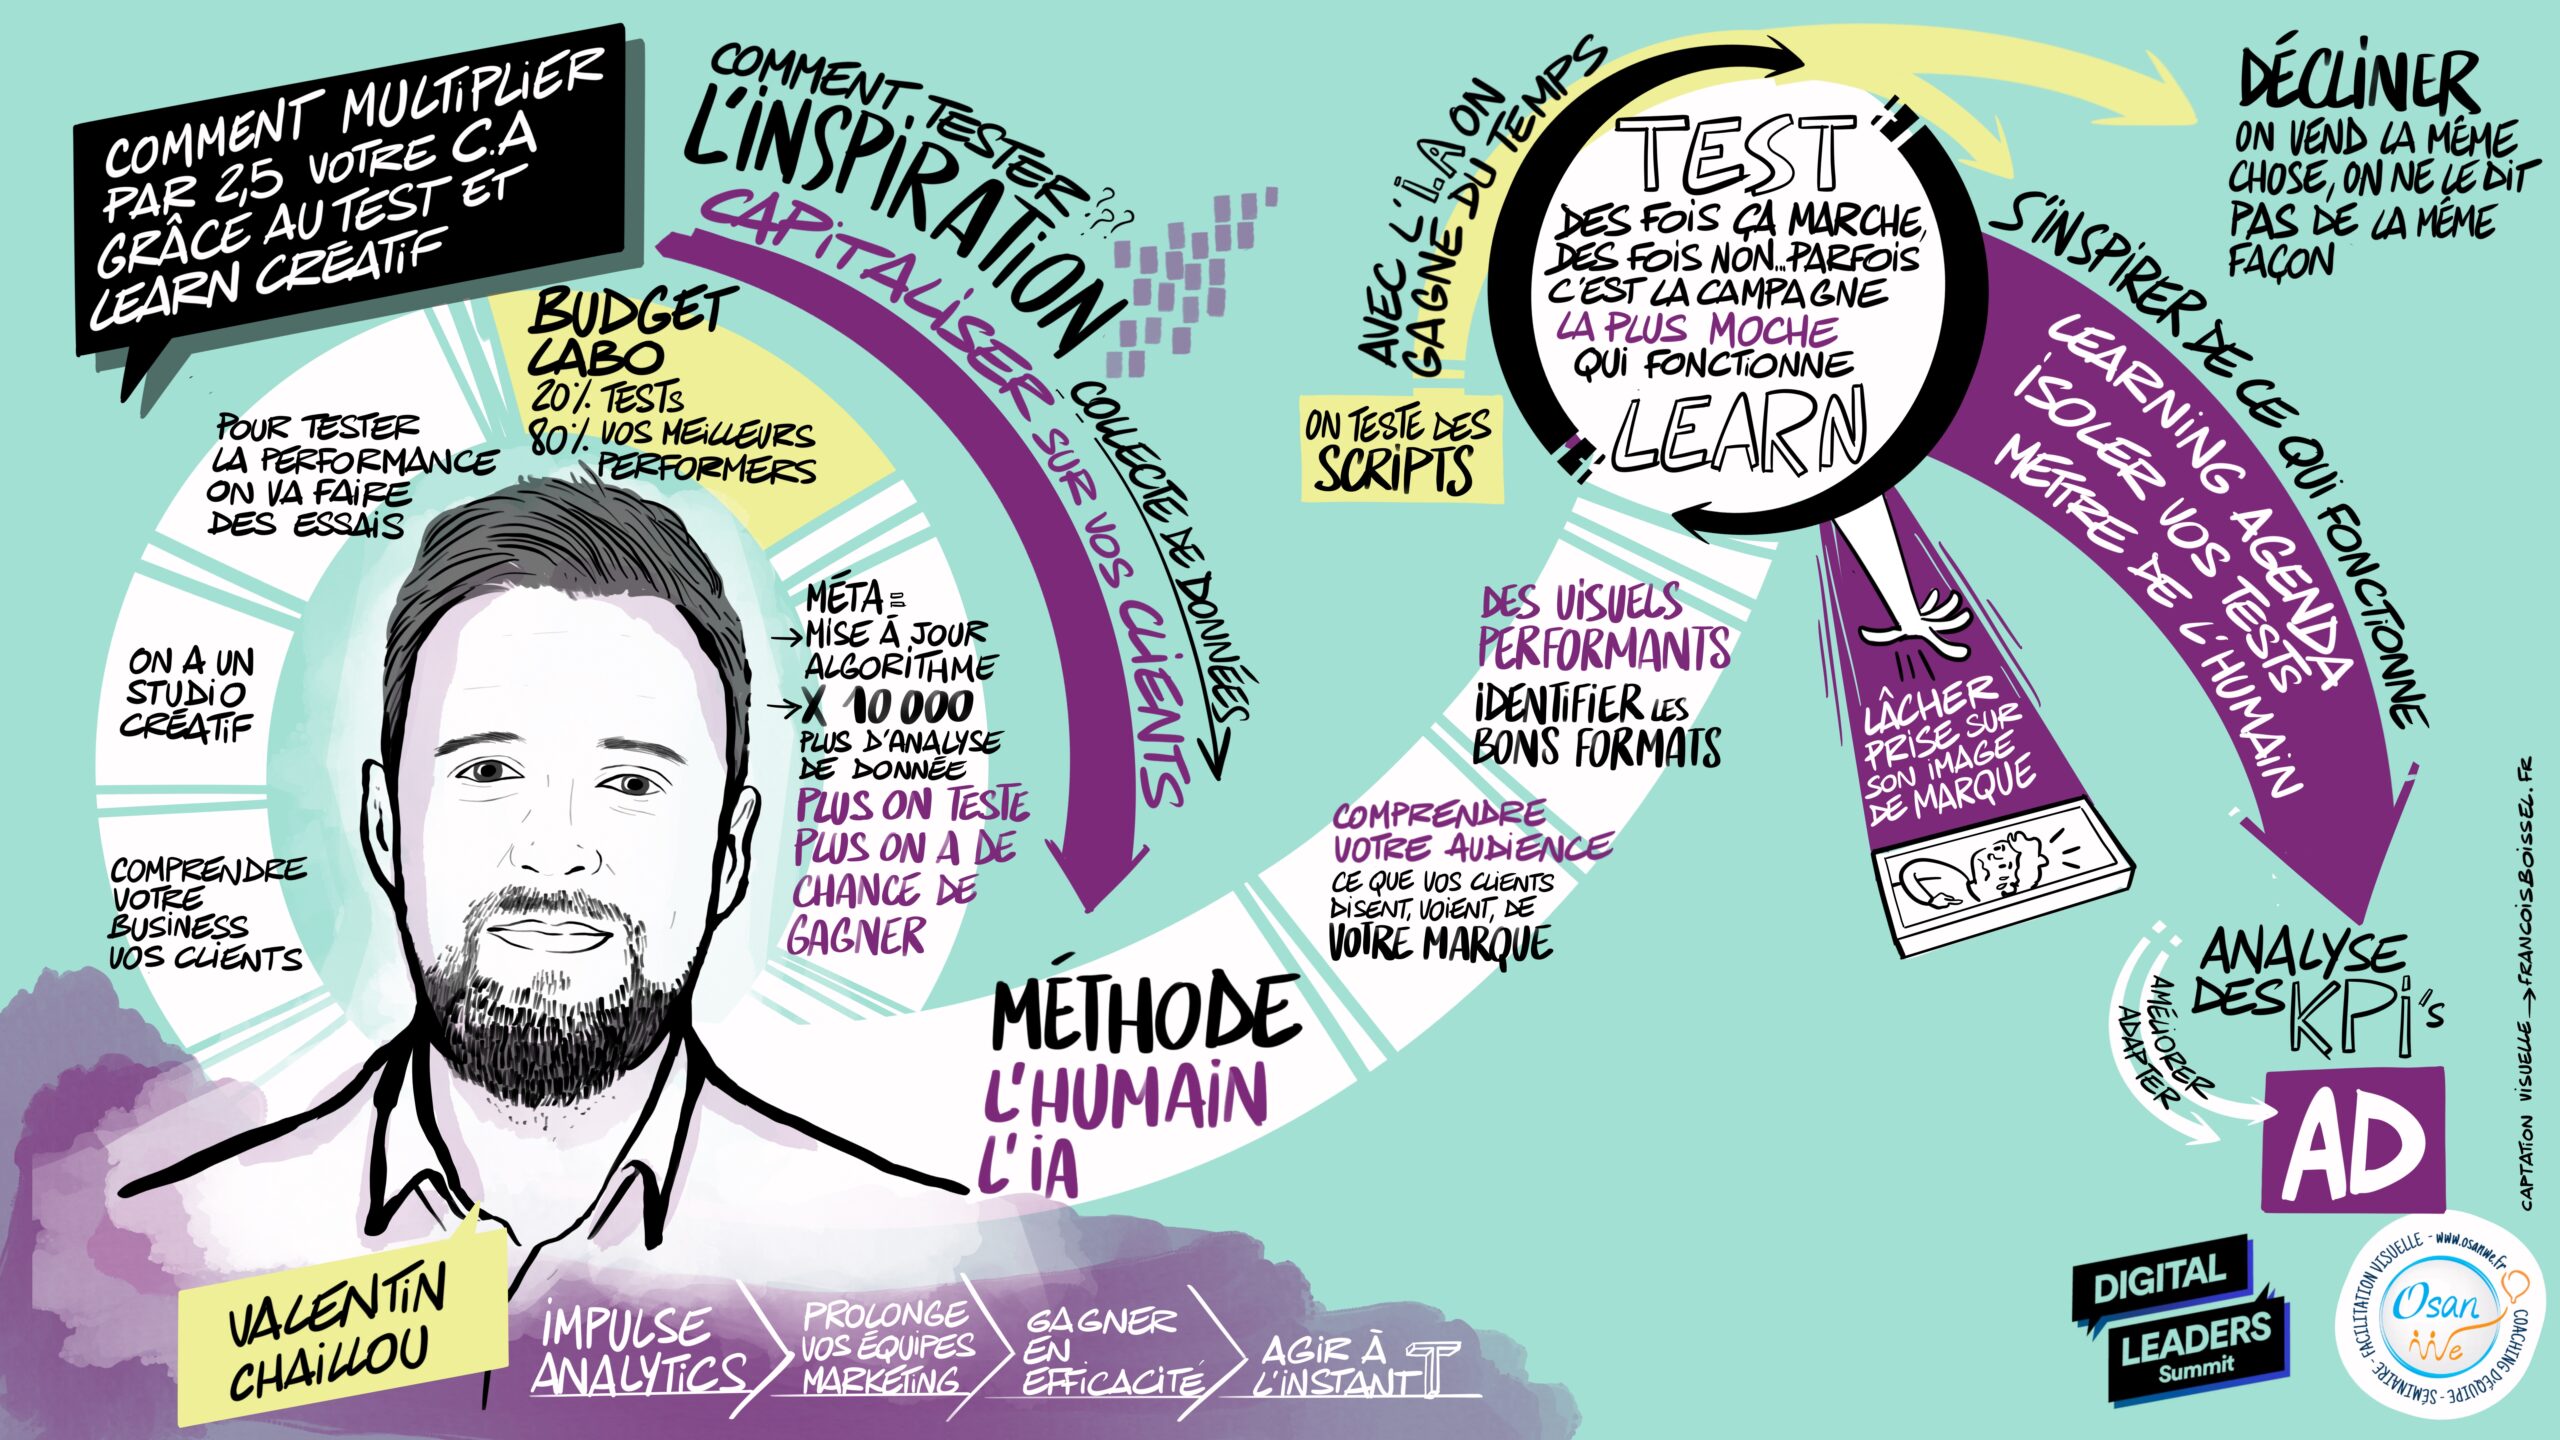 COMMENT MULTIPLIER
PAR 2,5 VOTRE C.A
GRÂCE AU TEST ET
LEARN CRÉATIF
BUDGET
LABO
20% TESTS
80% VOS MEILLEURS
PERFORMERS
POUR TESTER
LA PERFORMANCE
ON VA FAIRE
DES ESSAIS
ON A UN
STUDIO
CRÉATIF
COMPRENDRE
VOTRE
BUSINESS
VOS CLIENTS
MÉTA =
→ MISE À JOUR
ALGORITHME
→ X 10 000
PLUS D'ANALYSE
DE DONNÉE
PLUS ON TESTE
PLUS ON A DE
CHANCE DE
GAGNER
COMMENT TESTER ???
L'INSPIRATION
CAPITALISER SUR VOS CLIENTS
COLLECTE DE DONNÉES
MÉTHODE
L'HUMAIN
L'IA
COMPRENDRE
VOTRE AUDIENCE
CE QUE VOS CLIENTS
DISENT, VOIENT, DE
VOTRE MARQUE
DES VISUELS
PERFORMANTS
IDENTIFIER LES
BONS FORMATS
ON TESTE DES
SCRIPTS
AVEC L'I.A ON
GAGNE DU TEMPS
TEST
DES FOIS ÇA MARCHE,
DES FOIS NON...PARFOIS
C'EST LA CAMPAGNE
LA PLUS MOCHE
QUI FONCTIONNE
LEARN
LÂCHER
PRISE SUR
SON IMAGE
DE MARQUE
DÉCLINER
ON VEND LA MÊME
CHOSE, ON NE LE DIT
PAS DE LA MÊME
FAÇON
S'INSPIRER DE CE QUI FONCTIONNE
LEARNING AGENDA
ISOLER VOS TESTS
METTRE DE L'HUMAIN
ANALYSE
DES KPI's
AMÉLIORER
ADAPTER
AD
VALENTIN
CHAILLOU
IMPULSE
ANALYTICS
PROLONGE
VOS ÉQUIPES
MARKETING
GAGNER
EN
EFFICACITÉ
AGIR À
L'INSTANT T
DIGITAL
LEADERS
Summit
Osan
We
SÉMINAIRE - FACILITATION VISUELLE - www.osanwe.fr
COACHING D'ÉQUIPE -
CAPTATION VISUELLE → FRANCOISBOISSEL.FR